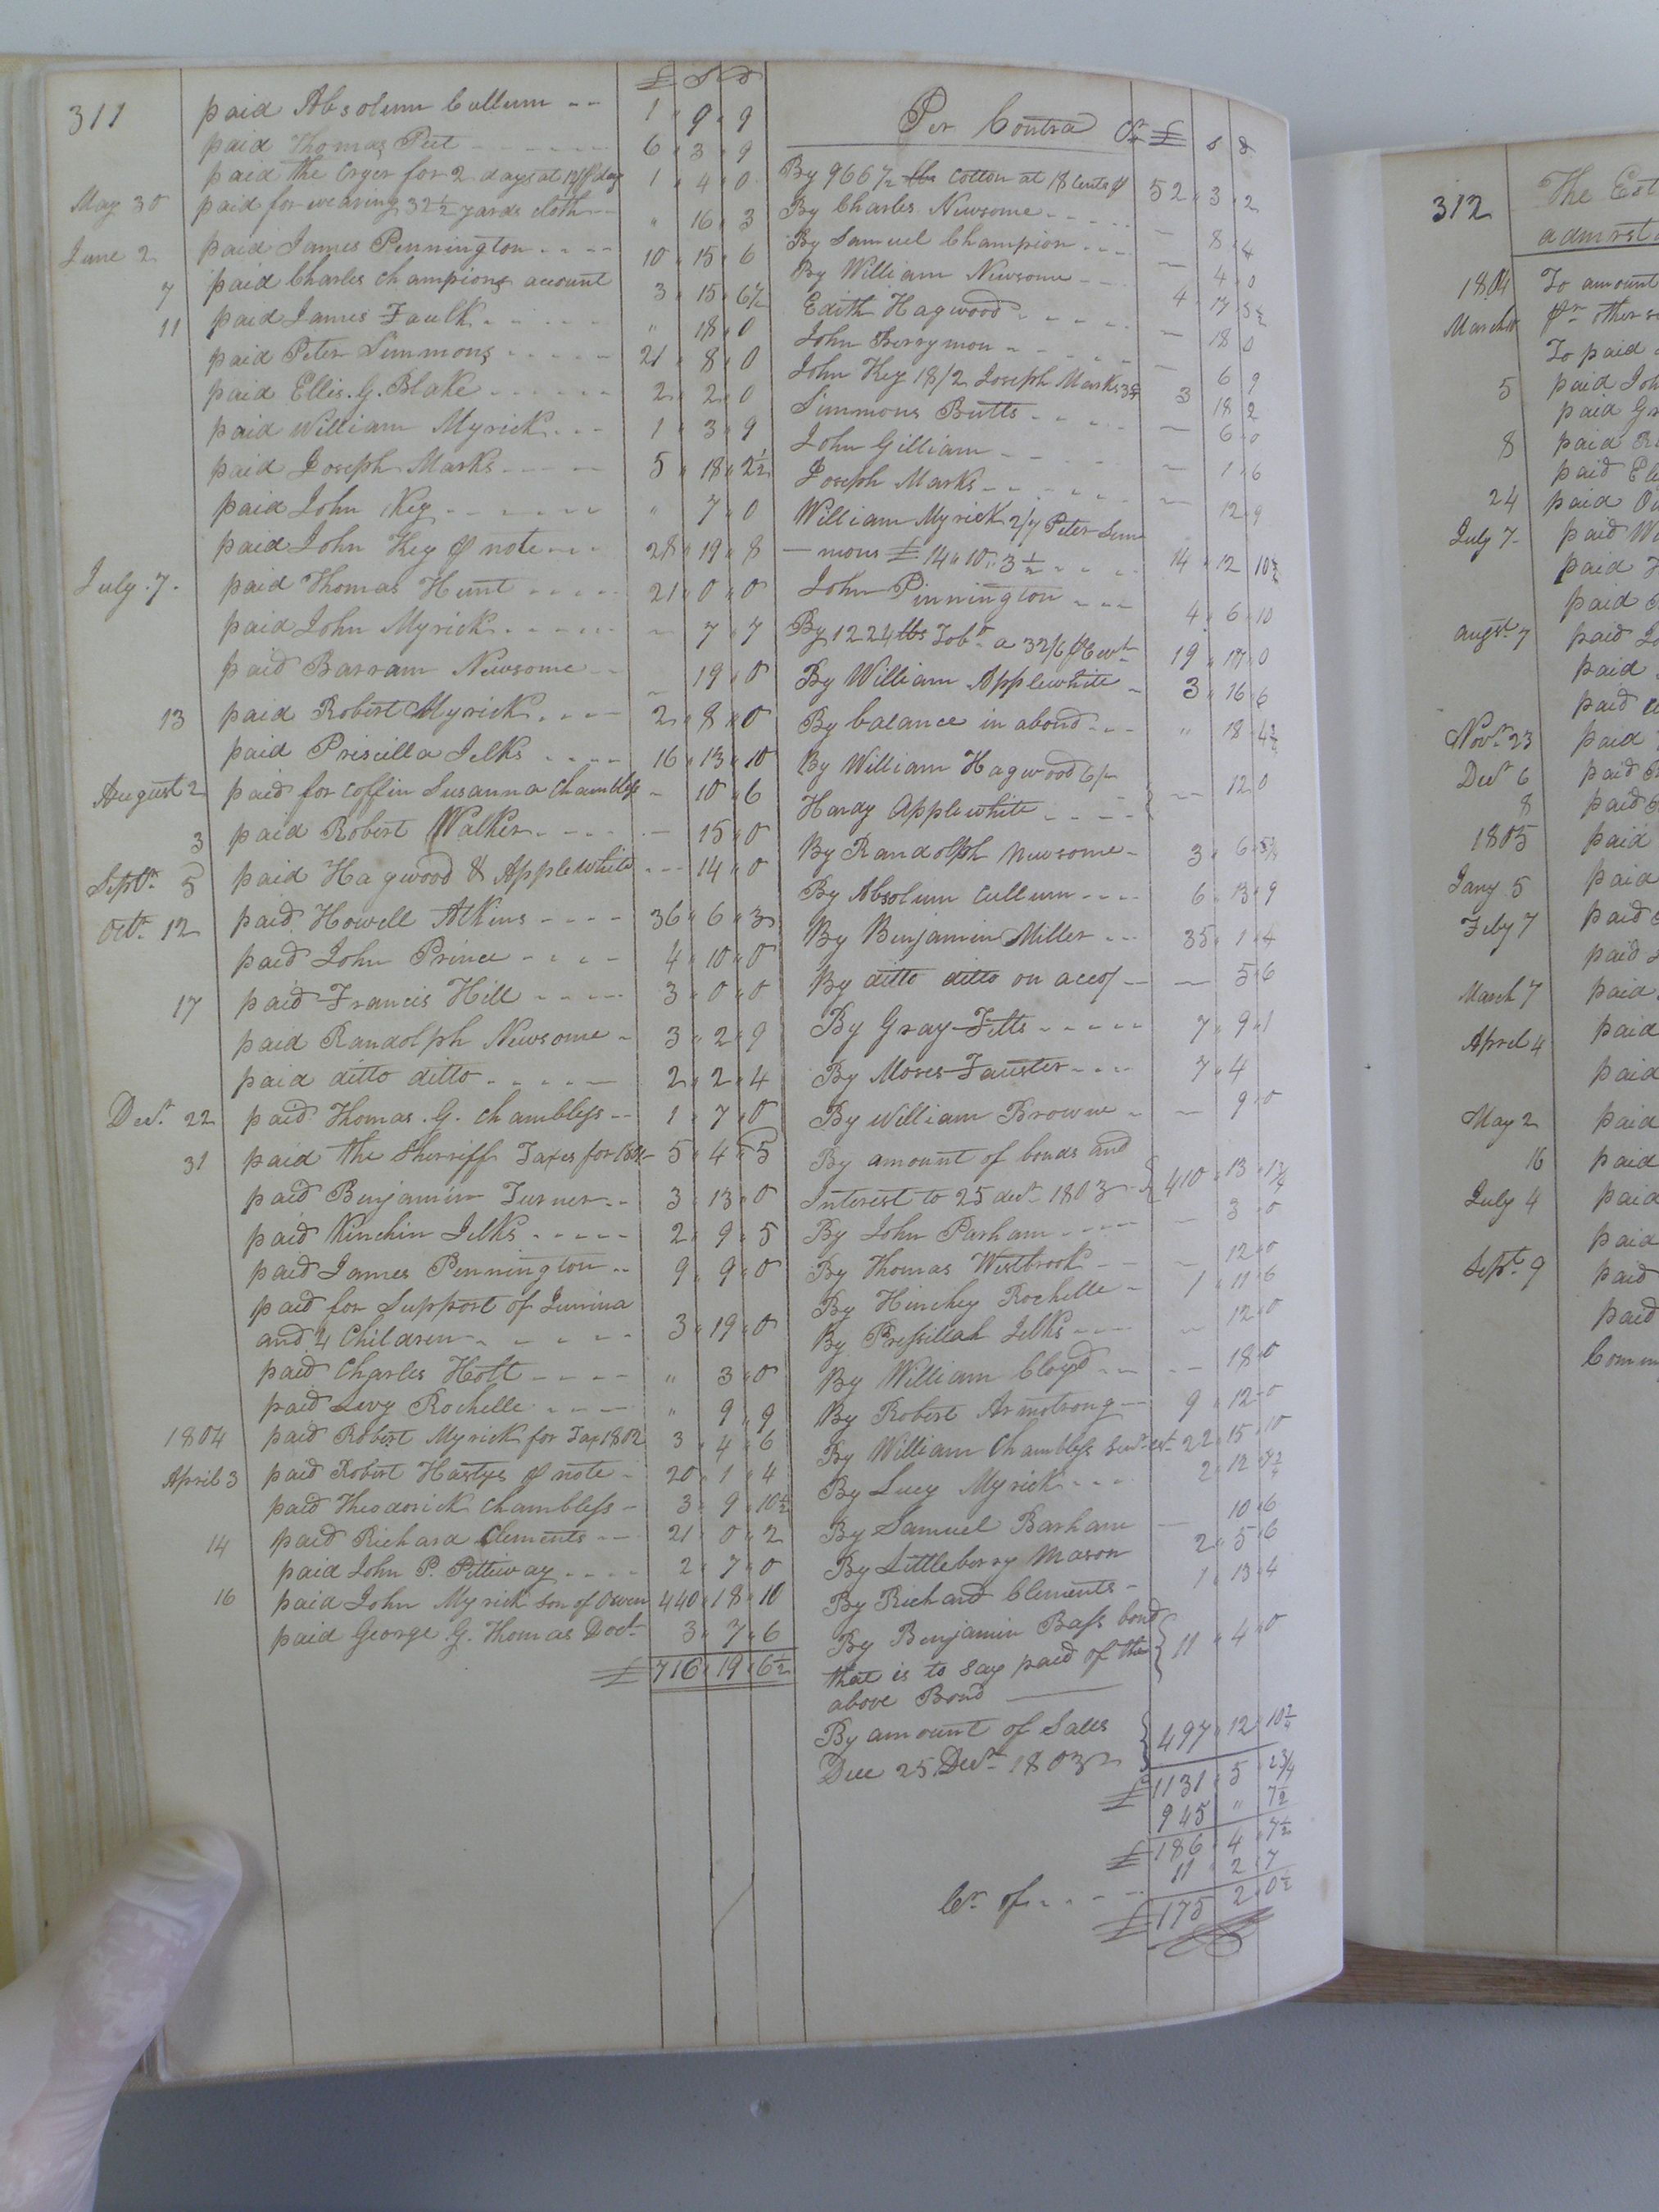 311
£ s d
paid Absolum Cullum -- 1 " 9 " 9
paid Thomas Peet ------ 6 " 3 " 9
paid the Cryer for 2 days at 12/ ⅌ day 1 " 4 " 0
May 30 paid for weaving 32½ yards cloth -- " 16 " 3
June 2 paid James Pennington ---- 10 " 15 " 6
7 paid Charles Champions account 3 " 15 " 6½
11 paid James Faulk ----- " 18 " 0
paid Peter Simmons ----- 21 " 8 " 0
paid Ellis. G. Blake ------ 2 " 2 " 0
paid William Myrick --- 1 " 3 " 9
paid Joseph Marks ---- 5 " 18 " 2½
paid John Key ------ " 7 " 0
paid John Key ⅌ note --- 28 " 19 " 8
July 7. paid Thomas Hunt ----- 21 " 0 " 0
paid John Myrick ------ - 7 " 7
paid Barram Newsome -- - 19 " 0
13 paid Robert Myrick ---- 2 " 8 " 0
paid Priscilla Jelks ---- 16 " 13 " 10
August 2 paid for Coffin Susanna Chambless - 10 " 6
3 paid Robert Walker ---- - 15 " 0
Septr 5 paid Hagwood & Applewhite -- - 14 " 0
Octr 12 paid Howell Atkins ---- 36 " 6 " 3
paid John Prince ---- 4 " 10 " 0
17 paid Francis Hill ---- 3 " 0 " 0
paid Randolph Newsome - 3 " 2 " 9
paid ditto ditto ----- 2 " 2 " 4
Decr 22 paid Thomas. G. Chambless -- 1 " 7 " 0
31 paid the Sherriff Taxes for 5 " 4 " 5
paid Benjamin Turner -- 3 " 13 " 0
paid Kinchin Jelks ----- 2 " 9 " 5
paid James Pennington -- 9 " 9 " 0
paid for Support of
and 4 Children ------ 3 " 19 " 0
paid Charles Holt ---- " 3 " 0
paid Levy Rochelle ---- " 9 " 9
1804 paid Robert Myrick for Tax 1802 3 " 4 " 6
April 3 paid Robert Hastys ⅌ note - 20 " 1 " 4
paid Theodorick Chambless - 3 " 9 " 10½
14 paid Richard Clements -- 21 " 0 " 2
paid John P. Pittway ---- 2 " 7 " 0
16 paid John Myrick son of Owen 440 " 18 " 10
paid George. G. Thomas Doct 3 " 7 " 6
£ 716 " 19 " 6½
Per Contra Cr £ s d
By 966½ lbs Cotton at 18 Cents ⅌ 52 " 3 " 2
By Charles Newsome ---- - 8 " 4
By Samuel Champion --- - 4 " 0
By William Newsome --- 4 " 17 5½
Edith Hagwood ----- - 18 0
John Berrymon ------ - 6 9
John Key 18/2 Joseph Marks 3 18 2
Simmons Butts ----- - 6 " 0
John Gilliam ----- - 1 " 6
Joseph Marks ------ - 12 " 9
William Myrick 2/7 Peter Sim
-mons £ 14 " 10 " 3½ ---- 14 " 12 10½
John Pinnington --- 4 " 6 " 10
By 1224 lbs Tobo a 32/6 ⅌ Cwt 19 " 17 " 0
By William Applewhite - 3 " 16 " 6
By balance in abond --- " 18 " 4¾
By William Hagwood 6/-
Hardy Applewhite ---- } - 12 0
By Randolph Newsome - 3 " 6 "
By Absolum Cullum ---- 6 " 13 " 9
By Benjamin Miller --- 35 " 1 " 4
By ditto ditto on acco/ -- - 5 " 6
By Gray Fitts ----- 7 " 9 " 1
By Moses Fauster ---- 7 " 4
By William Browne - - 9 " 0
By amount of bonds and
Interest to 25 decr 1803 - } 410 " 13 " 1¾
By John Parham ---- - 3 " 0
By Thomas Westbrook -- - 12 " 0
By Hinchey Rochelle - 1 " 11 " 6
By Pressillah Jelks ---- - 12 " 0
By William Cloyd --- - 18 " 0
By Robert Armstrong -- 9 " 12 " 0
By William Chambless Senr est 22 " 15 " 10
By Lucy Myrick --- 2 " 12 "
By Samuel Barham - 10 " 6
By Littleberry Mason 2 " 5 " 6
By Richard Clements - 1 " 13 " 4
By Benjamin Bass bond
that is to say paid of the } 11 " 4 " 0
above Bond
By amount of Sales
Due 25 Decr 1803 } 497 " 12 " 10¾
£ 1131 " 5 " 2¾
945 " 7½
£ 186 " 4 " 7½
11 " 2 " 7
Cr of ---- £ 175 2 " 0½
312
The Est
1804 To amount
March pr other
To paid
5 paid Joh
paid Gr
8 paid
paid El
24 paid
July 7- paid W
paid
paid
augst 7 paid
paid
paid
Novr 23 paid
Decr 6 paid
8 paid
1805 paid
Jany 5 paid
Feby 7 paid
paid
March 7 paid
April 4 paid
paid
May 2 paid
16 paid
July 4 paid
paid
Septr 9 paid
paid
Comm